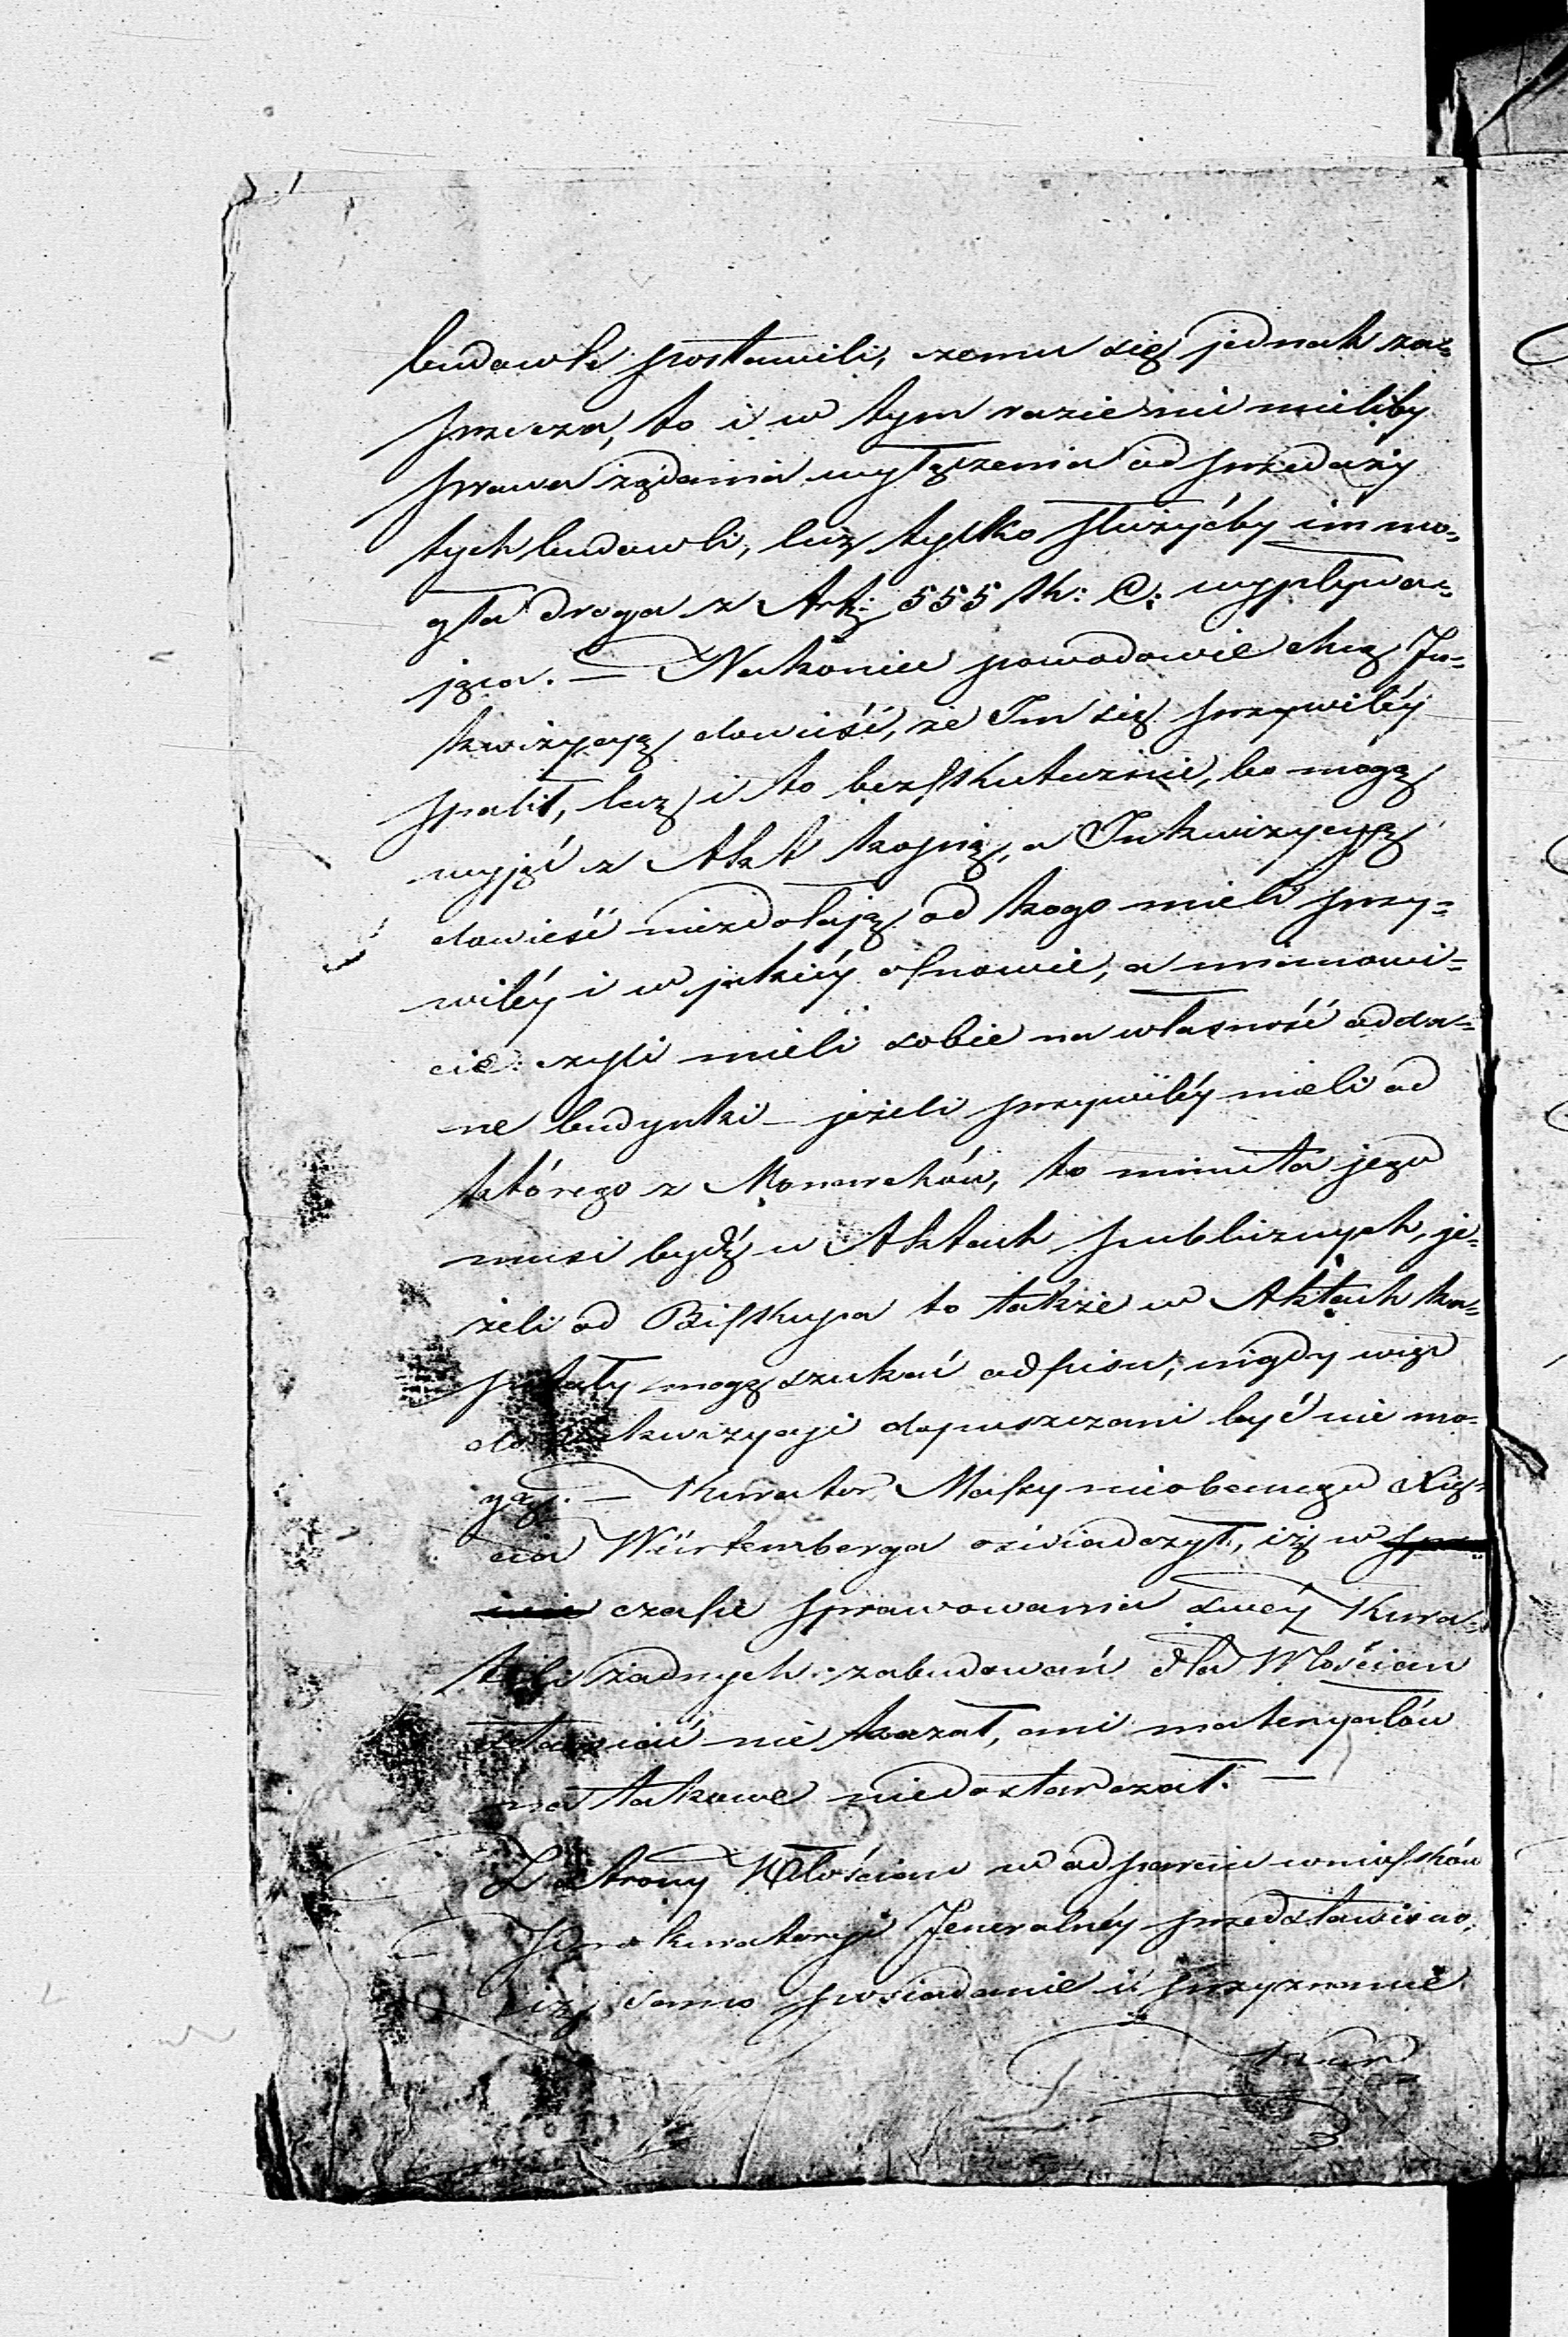 budowle postawili, czemu się jednak za=
przecza, to i w tym razie nie mieliby
prawa żądania wyłączenia od przedaży
tych budowli, lecz tylko służyćby im mo=
gła droga z Art: 555 K: C: wypływa=
jąca. — Nakoniec powodowie chcą In=
kwizycyą dowieść, że Im się przywiléy
spalił, lecz i to bezskutecznie, bo mogą
wyjąć z Akt kopią, a Inkwizycyą
dowieść niezdołają od kogo mieli przy=
wiléy i w jakiéy osnowie, a mianowi=
cie: czyli mieli sobie na własność odda=
ne budynki — jeżeli przywiléy mieli od
którego z Monarchów, to minuta jego
musi bydź w Aktach publicznych, je=
żeli od Biskupa to także w Aktach ka=
pituły mogą szukać odpisu; nigdy więc
do Inkwizycyi dopuszczani być nie mo=
gą. — Kurator Massy nieobecnego Xię=
cia Würtemberga oświadczył, iż w
czasie sprawowania swéy Kura=
teli żadnych zabudowań dla Włościan
stawiać nie kazał, ani materyałów
na takowe niedostarczał. —
Z strony Włościan w odparciu wniosków
Prokuratoryi Jeneralnéy przedstawiono,
iż samo posiadanie i przyznanie